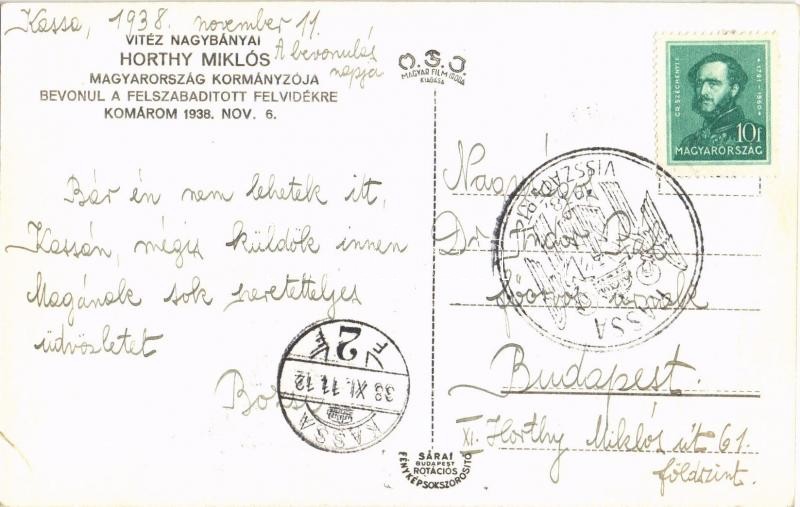 Kassa, 1938. november 11.
A bevonulás
napja
VITÉZ NAGYBÁNYAI
HORTHY MIKLÓS
MAGYARORSZÁG KORMÁNYZÓJA
BEVONUL A FELSZABADITOTT FELVIDÉKRE
KOMÁROM 1938. NOV. 6.
Bár én nem lehetek itt,
Kassán, mégis küldök innen
Magának sok szeretetteljes
üdvözletet
KASSA
38 XI. 11. 12
2
MAGYAR FILM IRODA
KIADÁSA
SÁRAI
BUDAPEST
ROTÁCIÓS
FÉNYKÉPSOKSZOROSITÓ
GR. SZÉCHENYI I.
1791-1860
10f
MAGYARORSZÁG
KASSA
VISSZATÉRT
Dr
úrnak
Budapest.
XI. Horthy Miklós út 61.
földszint.